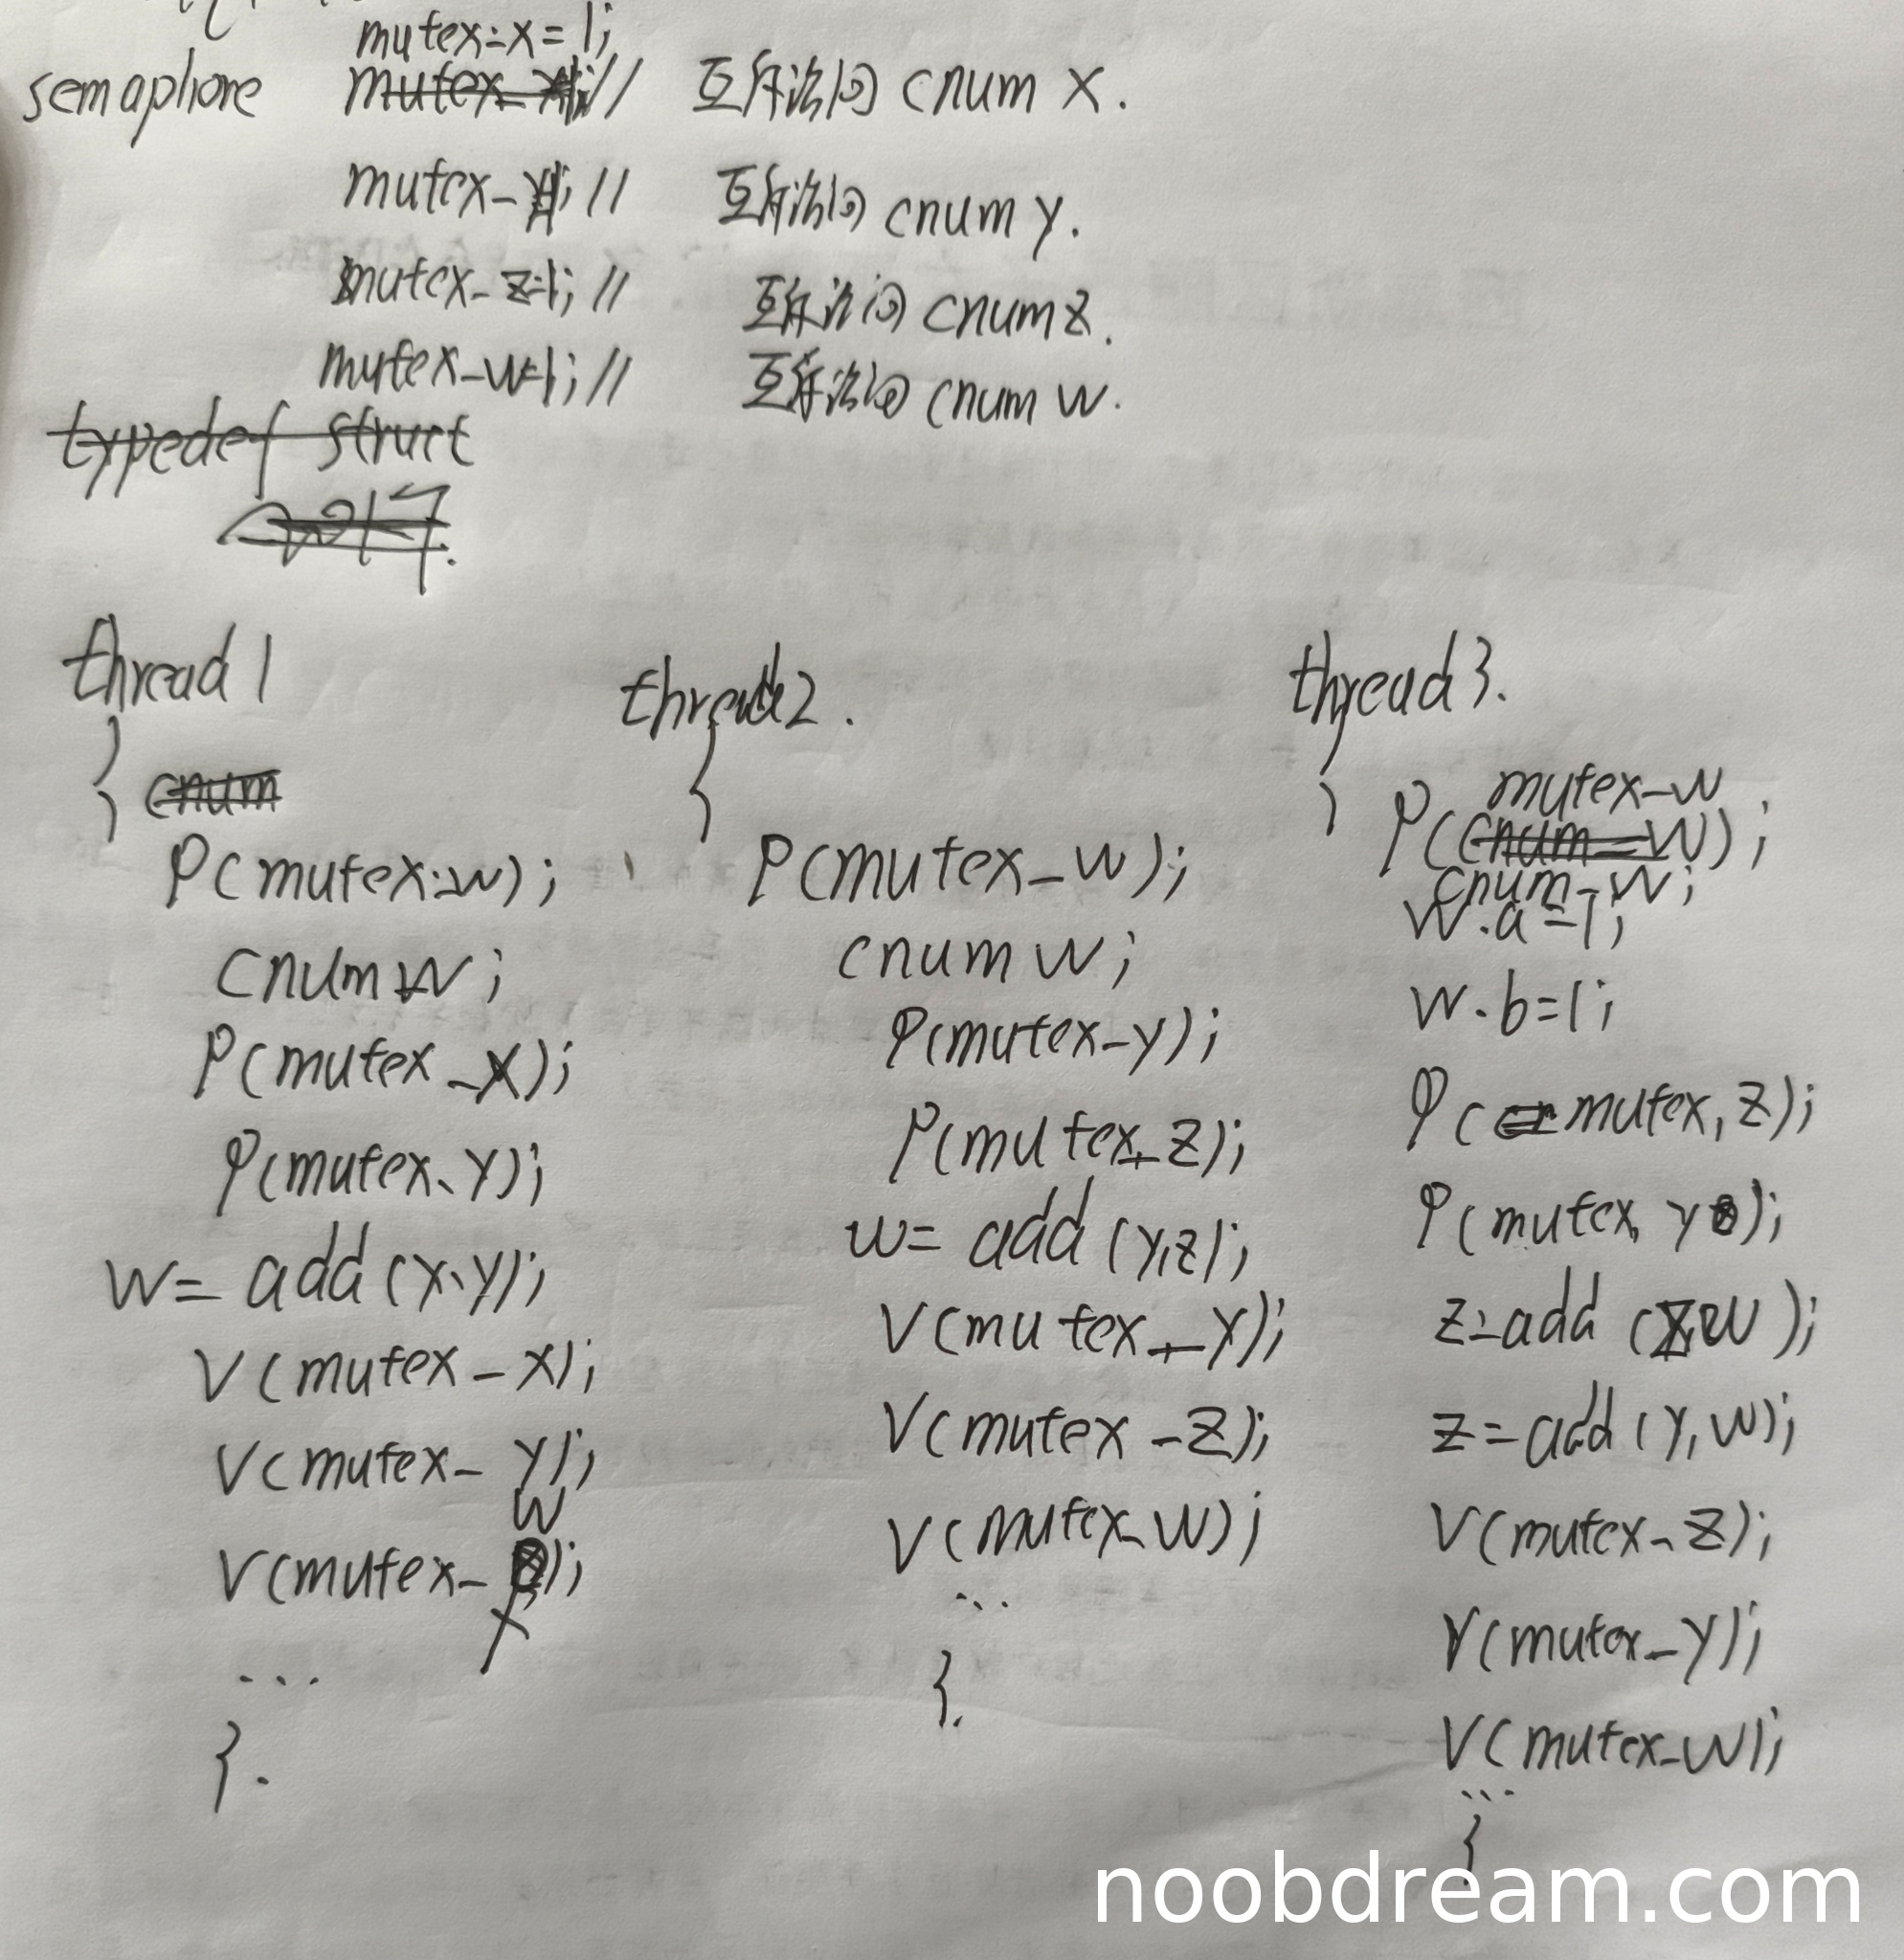 mutex-x=1;
semaphore mutex-x // 互斥访问 cnum x.
mutex-y=1; // 互斥访问 cnum y.
mutex-z=1; // 互斥访问 cnum z.
mutex-w=1; // 互斥访问 cnum w.
typedef struct
thread 1
{ cnum
P(mutex-w);
cnum w;
P(mutex-x);
P(mutex-y);
w= add(x,y);
V(mutex-x);
V(mutex-y);
w
V(mutex- );
...
}.
thread2.
{
P(mutex-w);
cnum w;
P(mutex-y);
P(mutex-z);
w= add(y,z);
V(mutex-y);
V(mutex-z);
V(mutex-w);
...
}.
thread3.
{
mutex-w
P(cnum-w);
cnum-w;
w.a=1;
w.b=1;
P(mutex,z);
P(mutex, y);
z=add(z,w);
z=add(y,w);
V(mutex-z);
V(mutex-y);
V(mutex-w);
...
}
noobdream.com